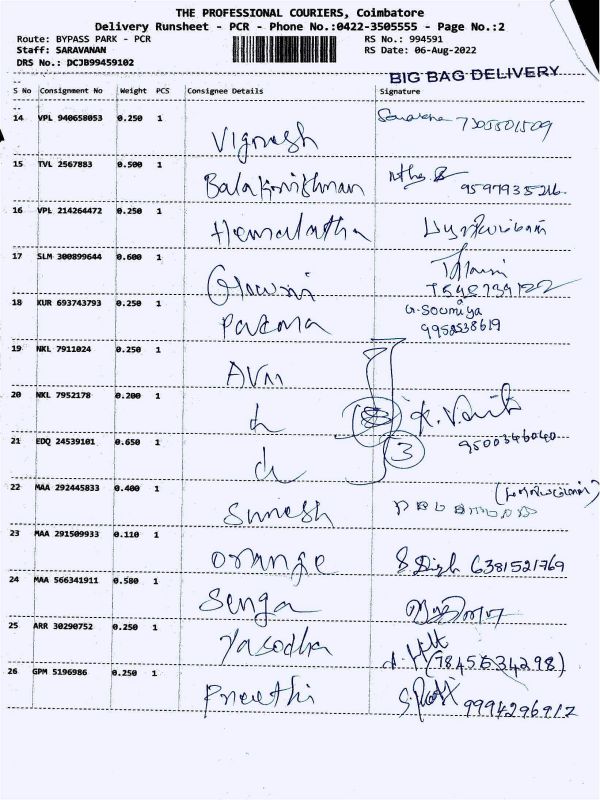 THE PROFESSIONAL COURIERS, Coimbatore
Delivery Runsheet - PCR - Phone No.:0422-3505555 - Page No.:2
Route: BYPASS PARK - PCR RS No.: 994591
Staff: SARAVANAN RS Date: 06-Aug-2022
DRS No.: DCJB99459102
BIG BAG DELIVERY
S No Consignment No Weight PCS Consignee Details Signature
14 VPL 940658053 0.250 1 Vignesh
15 TVL 2567883 0.500 1 Balakrishnan 9597935216
16 VPL 214264472 0.250 1 Hemalatha
17 SLM 300899644 0.600 1
18 KUR 693743793 0.250 1 Padma G. Soumiya
9952538619
19 NKL 7911024 0.250 1 AVM
20 NKL 7952178 0.200 1 9500346040
21 EDQ 24539101 0.650 1 3
22 MAA 292445833 0.400 1 Suresh
23 MAA 291509933 0.110 1 Orange 6381521769
24 MAA 566341911 0.580 1 Senga
25 ARR 30290752 0.250 1 Yasodha
26 GPM 5196986 0.250 1 Preethi 9994296912